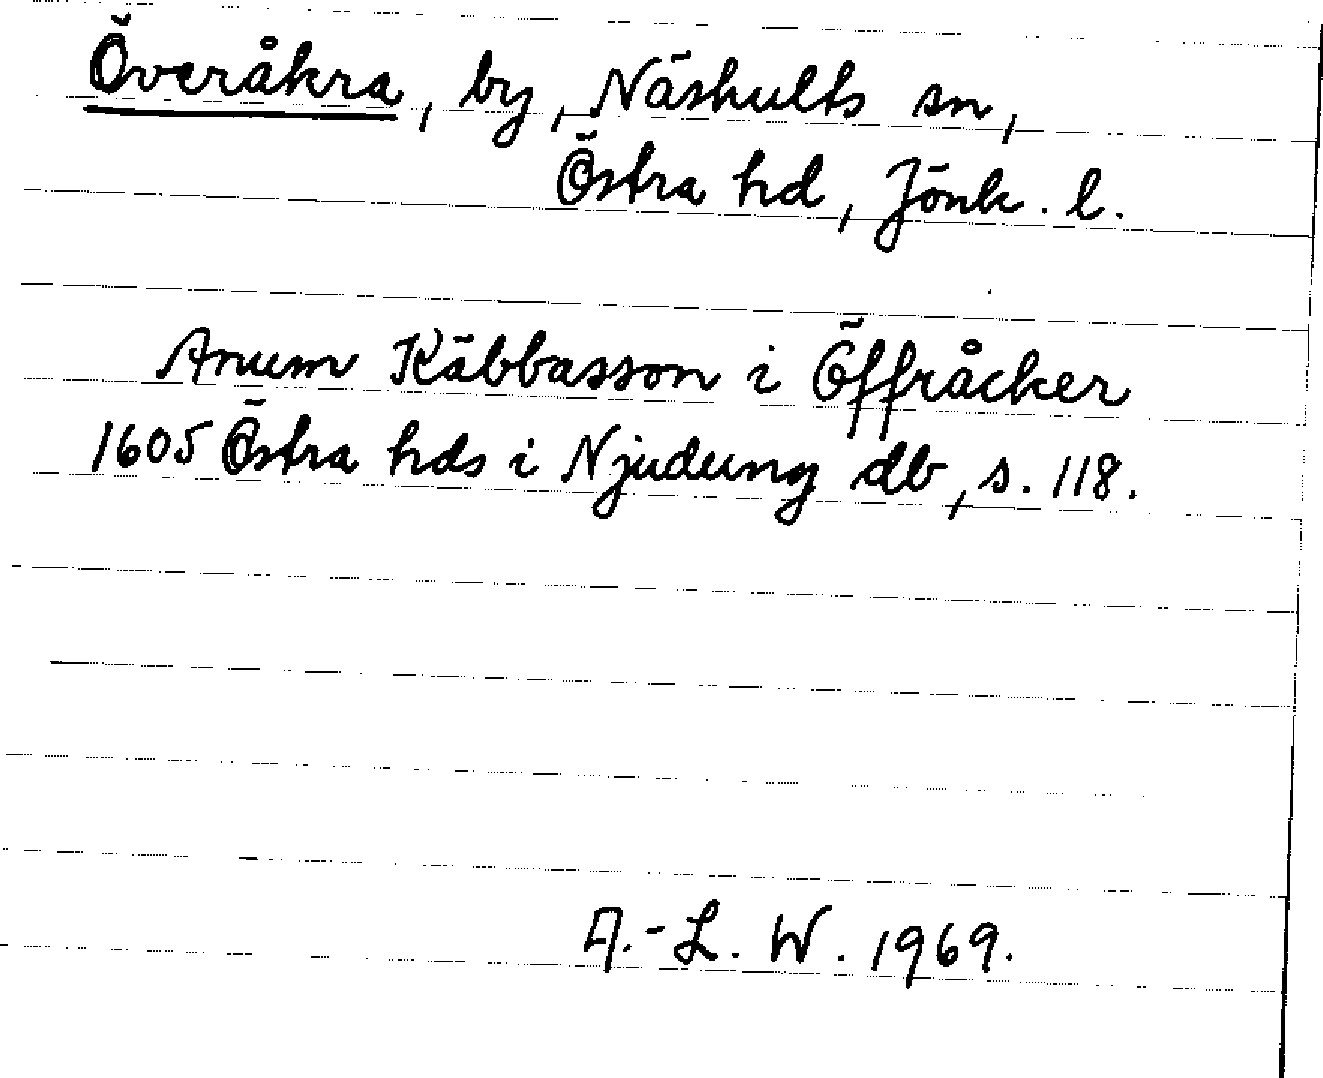 Överåkra, by, Näshults sn,
Östra hd, Jönk. l.
Arvum Käbbasson i Öffråcker
1605 Östra hds i Njudung db, s. 118.
A.-L. W. 1969.